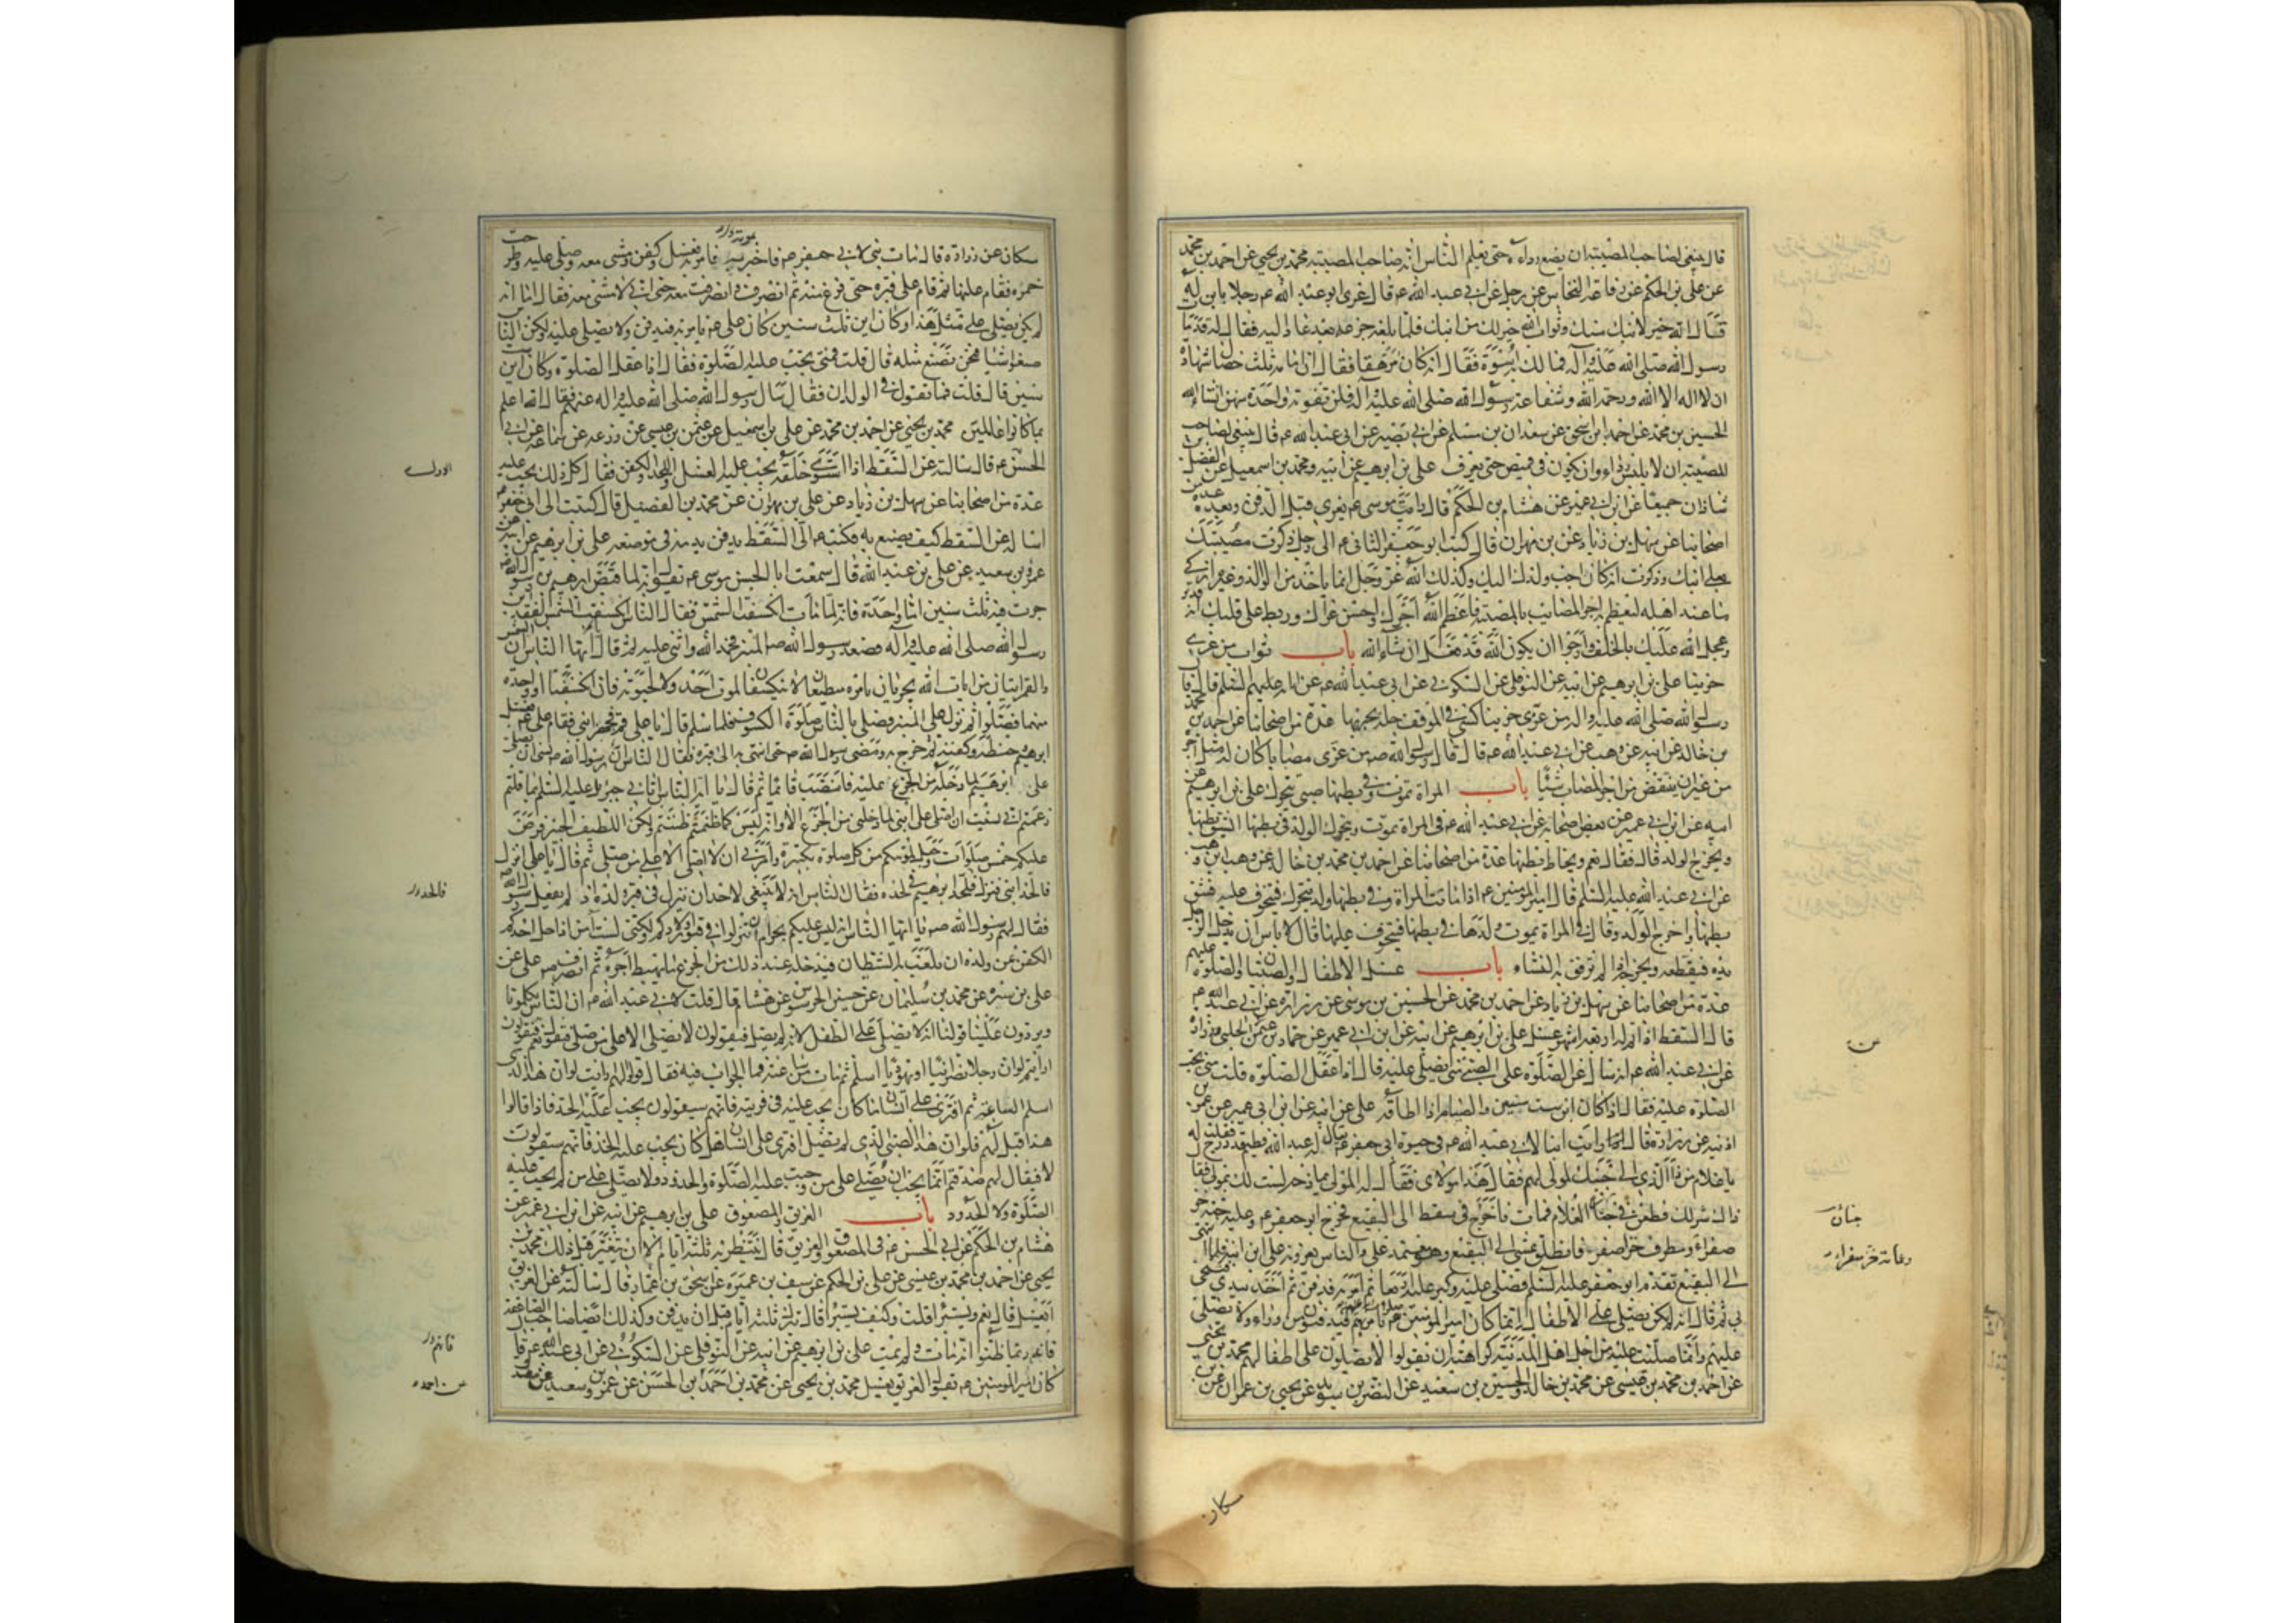 قال ينبغى لصاحب المصيبة ان يضع رداءه حتى يعلم الناس انه صاحب المصيبة محمد بن يحيى عن احمد بن محمد
عن على بن الحكم عن رفاعة النخاس عن رجل عن ابى عبد الله ع قال عزى ابو عبد الله ع رجلا بابن له
فقال له الله خير لابنك منك وثواب الله خير لك من ابنك فلما بلغه جزعه بعد عاد اليه فقال له قد مات
رسول الله صلى الله عليه وآله فما لك به اسوة فقال انه كان مرهقا فقال ان امامه ثلث خصال شهادة
ان لا اله الا الله ورحمة الله وشفاعة رسول الله صلى الله عليه وآله فلن تفوته واحدة منهن انشاء الله
الحسين بن محمد عن احمد بن اسحق عن سعدان بن مسلم عن ابى بصير عن ابى عبد الله ع قال ينبغى لصاحب
المصيبة ان لا يلبس رداء وان يكون فى قميص حتى يعرف على بن ابرهيم عن ابيه ومحمد بن اسمعيل عن الفضل بن
شاذان جميعا عن ابن ابى عمير عن هشام بن الحكم قال رايت موسى ع يعزى قبل الدفن وبعده عدة من
اصحابنا عن سهل بن زياد عن بن مهران قال كتب ابو جعفر الثانى ع الى رجل ذكرت مصيبتك
بعلى ابنك وذكرت انه كان احب ولدك اليك وكذلك الله عز وجل انما ياخذ من الوالد وغيره ازكى
ما عند اهله ليعظم به اجر المصاب بالمصيبة فاعظم الله اجرك واحسن عزاك وربط على قلبك انه قدير
وعجل الله عليك بالخلف وارجوا ان يكون الله قد فعل ان شاء الله باب ثواب من عزى
حزينا على بن ابرهيم عن ابيه عن النوفلى عن السكونى عن ابى عبد الله ع عن ابائه عليهم السلم قال قال
رسول الله صلى الله عليه واله من عزى حزينا كسى فى الموقف حلة يحبى بها عدة من اصحابنا عن احمد بن محمد
بن خالد عن ابيه عن وهب عن ابى عبد الله ع قال قال رسول الله ص من عزى مصابا كان له مثل اجره
من غير ان ينتقص من اجر المصاب شيئا باب المراة تموت وفى بطنها صبى يتحرك على بن ابرهيم عن
ابيه عن ابن ابى عمير عن بعض اصحابه عن ابى عبد الله ع فى المراة تموت ويتحرك الولد فى بطنها ايشق بطنها
ويخرج الولد قال فقال نعم ويخاط بطنها عدة من اصحابنا عن احمد بن محمد بن خالد عن وهب بن وهب
عن ابى عبد الله عليه السلم قال قال امير المؤمنين ع اذا ماتت المراة وفى بطنها ولد يتحرك فيتخوف عليه فشق
بطنها واخرج الولد وقال فى المراة يموت ولدها فى بطنها فيتخوف عليها قال لا باس ان يدخل الرجل
يده فيقطعه ويخرجه اذا لم ترفق به النساء باب غسل الاطفال والصبيان والصلوة عليهم
عدة من اصحابنا عن سهل بن زياد عن احمد بن محمد عن الحسين بن موسى عن زرارة عن ابى عبد الله ع
قال السقط اذا تم له اربعة اشهر غسل على بن ابرهيم عن ابيه عن ابن ابى عمير عن حماد بن عثمن عن الحلبى وزرارة
عن ابى عبد الله ع انه سال عن الصلوة على الصبى متى يصلى عليه قال اذا عقل الصلوة قلت متى يجب
الصلوة عليه فقال اذا كان ابن ست سنين والصيام اذا اطاقه على عن ابيه عن ابن ابى عمير عن عمر بن
اذينة عن زرارة قال رايت ابنا لابى عبد الله ع فى حيوة ابى جعفر ع يقال له عبد الله فطيم قد درج فقلت له
يا غلام من ذا الذى الى جنبك لمولى لهم فقال هذا مولاى فقال له المولى يمازحه لست لك بمولى فقال
ذاك شر لك فطعن فى جنازة الغلام فمات فاخرج فى سقط الى البقيع فخرج ابو جعفر ع وعليه جبة خز
صفراء ومطرف خز اصفر فانطلق يمشى الى البقيع وهو معتمد على والناس يعزونه على ابن ابنه فلما انتهى
الى البقيع تقدم ابو جعفر عليه السلم فصلى عليه وكبر عليه اربعا ثم امر به فدفن ثم اخذ بيدى فتنحى
بى ثم قال انه لم يكن يصلى على الاطفال انما كان امير المؤمنين ع يامر بهم فيدفنون من وراء ولا يصلى
عليهم وانما صليت عليه من اجل اهل المدينة كراهية ان يقولوا لا يصلون على اطفالهم محمد بن يحيى
عن احمد بن محمد بن عيسى عن محمد بن خالد والحسين بن سعيد عن النضر بن سويد عن يحيى بن عمران عن بن
جنان
سكان
سكان عن زرارة قال مات بنى لابى جعفر ع فاخبر بموته فامر به فغسل وكفن ومشى معه وصلى عليه وطرحت
خمرة فقام عليها ثم قام على قبره حتى فرغ منه ثم انصرف وانصرفت معه حتى انى لامشى معه فقال اما انه
لم يكن يصلى على مثل هذا وكان ابن ثلث سنين كان على ع يامر به فيدفن ولا يصلى عليه ولكن الناس
صنعوا شيئا فنحن نصنع مثله قال قلت فمتى يجب عليه الصلوة فقال اذا عقل الصلوة وكان ابن ست
سنين قال قلت فما تقول فى الولدان فقال سال رسول الله صلى الله عليه واله عنهم فقال الله اعلم
بما كانوا عاملين محمد بن يحيى عن احمد بن محمد عن على بن اسمعيل عن عثمن بن عيسى عن زرعة عن سماعة عن ابى
الحسن ع قال سالته عن السقط اذا استوى خلقه يجب عليه الغسل واللحد والكفن فقال كل ذلك يجب عليه
عدة من اصحابنا عن سهل بن زياد عن على بن مهران عن محمد بن الفضيل قال كتبت الى ابى جعفر ع
اساله عن السقط كيف يصنع به فكتب ع الى السقط يدفن بدمه فى موضعه على بن ابرهيم عن ابيه عن
عمرو بن سعيد عن على بن عبد الله قال سمعت ابا الحسن موسى ع يقول انه لما قبض ابرهيم بن رسول الله ص
جرت فيه ثلث سنن اما واحدة فانه لما مات انكسفت الشمس فقال الناس انكسفت الشمس لفقد ابن
رسول الله صلى الله عليه وآله فصعد رسول الله ص المنبر فحمد الله واثنى عليه ثم قال ايها الناس ان الشمس
والقمر ايتان من ايات الله يجريان بامره مطيعان له لا ينكسفان لموت احد ولا لحيوته فان انكسفتا او واحدة
منهما فصلوا ثم نزل على المنبر فصلى بالناس صلوة الكسوف فلما سلم قال يا على قم فجهز ابنى فقام على ع فغسل
ابرهيم وحنطه وكفنه ثم خرج به ومضى رسول الله ص حتى انتهى به الى قبره فقال الناس ان رسول الله ص نسى ان يصلى
على ابرهيم لما دخله من الجزع عليه فانتصب قائما ثم قال يا ايها الناس اتانى جبرئيل عليه السلم بما قلتم
زعمتم انى نسيت ان اصلى على ابنى لما دخلنى من الجزع الا وانه ليس كما ظننتم ولكن اللطيف الخبير فرض
عليكم خمس صلوات وجعل لموتاكم من كل صلوة تكبيرة وامرنى ان لا اصلى الا على من صلى ثم قال يا على انزل
فالحد ابنى فنزل فالحد ابرهيم فى لحده فقال الناس انه لا ينبغى لاحد ان ينزل فى قبر ولده اذ لم يفعل رسول الله ص
فقال لهم رسول الله ص يا ايها الناس انه ليس عليكم بحرام ان تنزلوا فى قبور اولادكم ولكنى لست آمن اذا حل احدكم
الكفن عن ولده ان يلعب به الشيطان فيدخله عند ذلك من الجزع ما يحبط اجره ثم انصرف ص على عن
على بن شيرة عن محمد بن سليمان عن حسين الحرسوسى عن هشام قال قلت لابى عبد الله ع ان الناس يكلمونا
ويردون علينا قولنا انه لا يصلى على الطفل لانه لم يصل فيقولون لا يصلى الا على من صلى فنقول نعم فيقولون
ارايتم لو ان رجلا نصرانيا او يهوديا اسلم ثم مات من ساعته فما الجواب فيه فقال قولوا لهم ارايت لو ان هذا الذى
اسلم الساعة ثم افترى على انسان ما كان يجب عليه فى فريته فانهم سيقولون يجب عليه الحد فاذا قالوا
هذا قيل لهم فلو ان هذا الصبى الذى لم يصل افترى على انسان هل كان يجب عليه الحد فانهم سيقولون
لا فيقال لهم صدقتم انما يجب ان يصلى على من وجبت عليه الصلوة والحدود ولا يصلى على من لم يجب عليه
الصلوة ولا الحدود باب الغريق والمصعوق على بن ابرهيم عن ابيه عن ابن ابى عمير عن
هشام بن الحكم عن ابى الحسن ع فى المصعوق والغريق قال ينتظر به ثلثة ايام الا ان يتغير قبل ذلك محمد بن
يحيى عن احمد بن محمد بن عيسى عن على بن الحكم عن سيف بن عميرة عن اسحق بن عمار قال سالته عن الغريق
ايغسل قال نعم ويستبرا قلت وكيف يستبرا قال يترك ثلثة ايام قبل ان يدفن وكذلك ايضا صاحب الصاعقة
فانه ربما ظنوا انه مات ولم يمت على بن ابرهيم عن ابيه عن النوفلى عن السكونى عن ابى عبد الله ع قال
كان امير المؤمنين ع يقول الغريق يغسل محمد بن يحيى عن محمد بن احمد بن الحسن عن عمرو بن سعيد عن مصدق